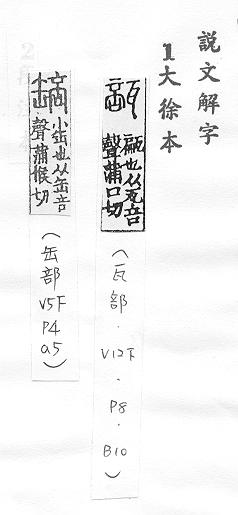 說文解字
1大徐本
瓿 甂也从瓦音
聲蒲口切
(瓦部.V12下.P8.B10)
䍌 小缶也从缶音
聲蒲候切
(缶部 V5下 P4 a5)